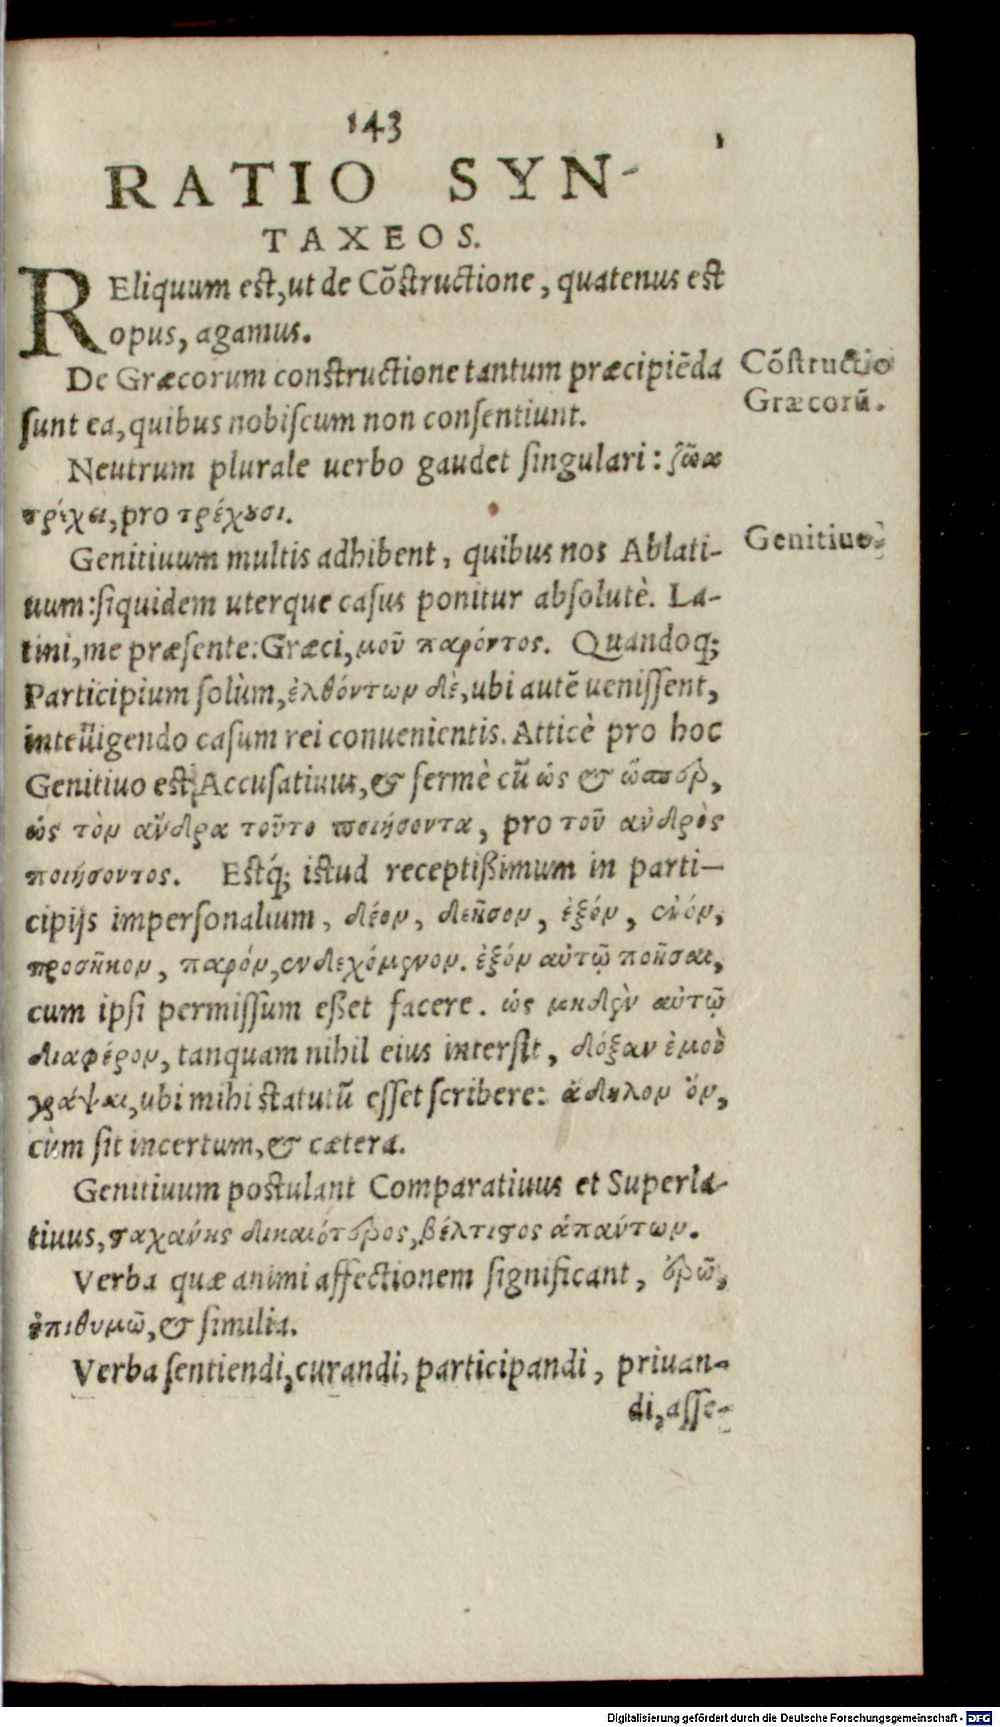 143
RATIO SYN-
TAXEOS.
REliquum est, ut de Cõstructione, quatenus est
opus, agamus.
De Græcorum constructione tantum præcipiẽda
sunt ea, quibus nobiscum non consentiunt.
Cõstructio
Græcorũ.
Neutrum plurale uerbo gaudet singulari: ζῶα
τρέχει, pro τρέχουσι.
Genitiuum multis adhibent, quibus nos Ablati-
uum: siquidem uterque casus ponitur absolutè. La-
tini, me præsente: Græci, μοῦ παρόντος. Quandoq;
Participium solùm, ἐλθόντων δὲ, ubi autẽ uenissent,
intelligendo casum rei conuenientis. Atticè pro hoc
Genitiuo est Accusatiuus, & fermè cũ ὡς & ὥσπερ,
ὡς τὸν ἄνδρα τοῦτο ποιήσοντα, pro τοῦ ἀνδρὸς
ποιήσοντος. Estq́; istud receptißimum in parti-
cipijs impersonalium, δέον, δεῆσον, ἐξόν, ἐνόν,
προσῆκον, παρόν, ἐνδεχόμενον. ἐξόν αὐτῷ ποῆσαι,
cum ipsi permissum eßet facere. ὡς μηδὲν αὐτῷ
διαφέρον, tanquam nihil eius intersit, δόξαν ἐμοὶ
γράψαι, ubi mihi statutũ esset scribere: ἄδηλον ὄν,
cùm sit incertum, & cætera.
Genitiuo.
Genitiuum postulant Comparatiuus et Superla-
tiuus, δικαιότερος, βέλτιστος ἁπάντων.
Verba quæ animi affectionem significant, ἐρῶ,
ἐπιθυμῶ, & similia.
Verba sentiendi, curandi, participandi, priuan-
di, asse-
Digitalisierung gefördert durch die Deutsche Forschungsgemeinschaft - DFG